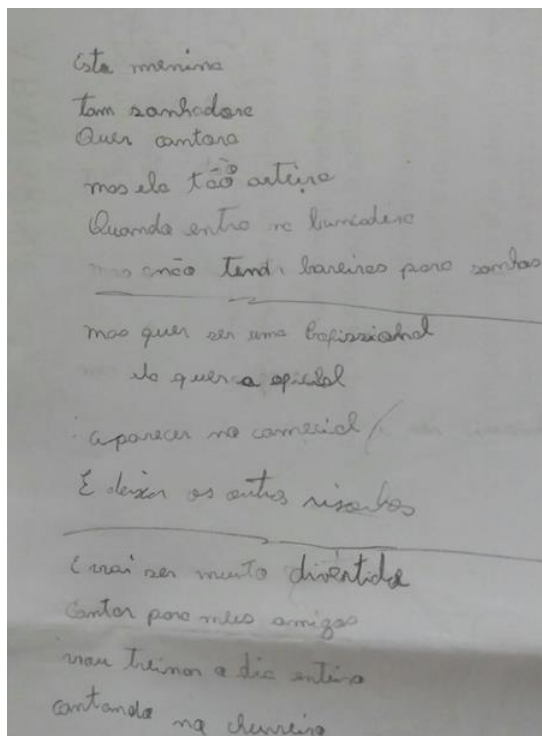 Esta menina
tam sonhadora
Quer cantora
mas ela tão arteira
Quando entra na brincadera
não tend bareiras para sonhos
mas quer ser uma
ela quer a
aparecer no comecial
E deixar os outros risonhos
E vai ser muito divertida
Cantar para meus amigos
vou treinar o dia inteiro
cantando na chuveiro